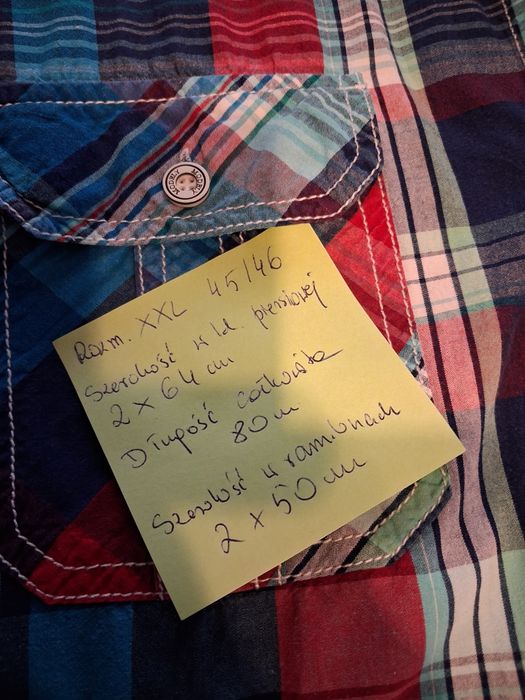 Rozm. XXL 45/46
Szerokość w kl. piersiowej
2 x 64 cm
Długość całkowita
80 cm
Szerokość w ramionach
2 x 50 cm